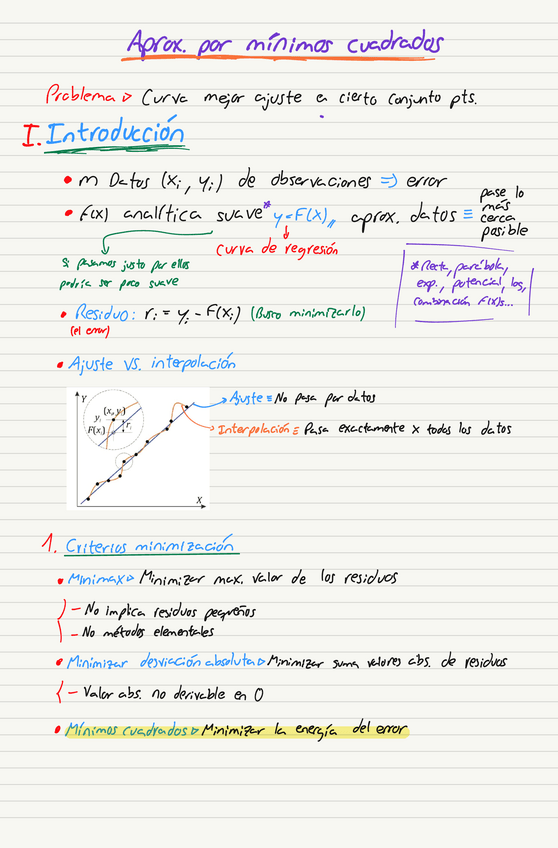 Aprox. por mínimos cuadrados
Problema ▷ Curva mejor ajuste a cierto conjunto pts.
I. Introducción
• m Datos (xi, yi) de observaciones => error
• F(x) analítica suave* y=F(x),, aprox. datos ≡ pase lo
más
cerca
posible
Si pasamos justo por ellos
podría ser poco suave
curva de regresión
* Recta, parábola,
exp., potencial, log,
combinación F(x)s...
• Residuo: ri = yi - F(xi) (Busco minimizarlo)
(el error)
• Ajuste vs. interpolación
Y
(xi, yi)
yi
ri
F(xi)
X
Ajuste ≡ No pasa por datos
Interpolación ≡ Pasa exactamente x todos los datos
1. Criterios minimización
• Minimax ▷ Minimizar max. valor de los residuos
- No implica residuos pequeños
- No métodos elementales
• Minimizar desviación absoluta ▷ Minimizar suma valores abs. de residuos
- Valor abs. no derivable en 0
• Mínimos cuadrados ▷ Minimizar la energía del error